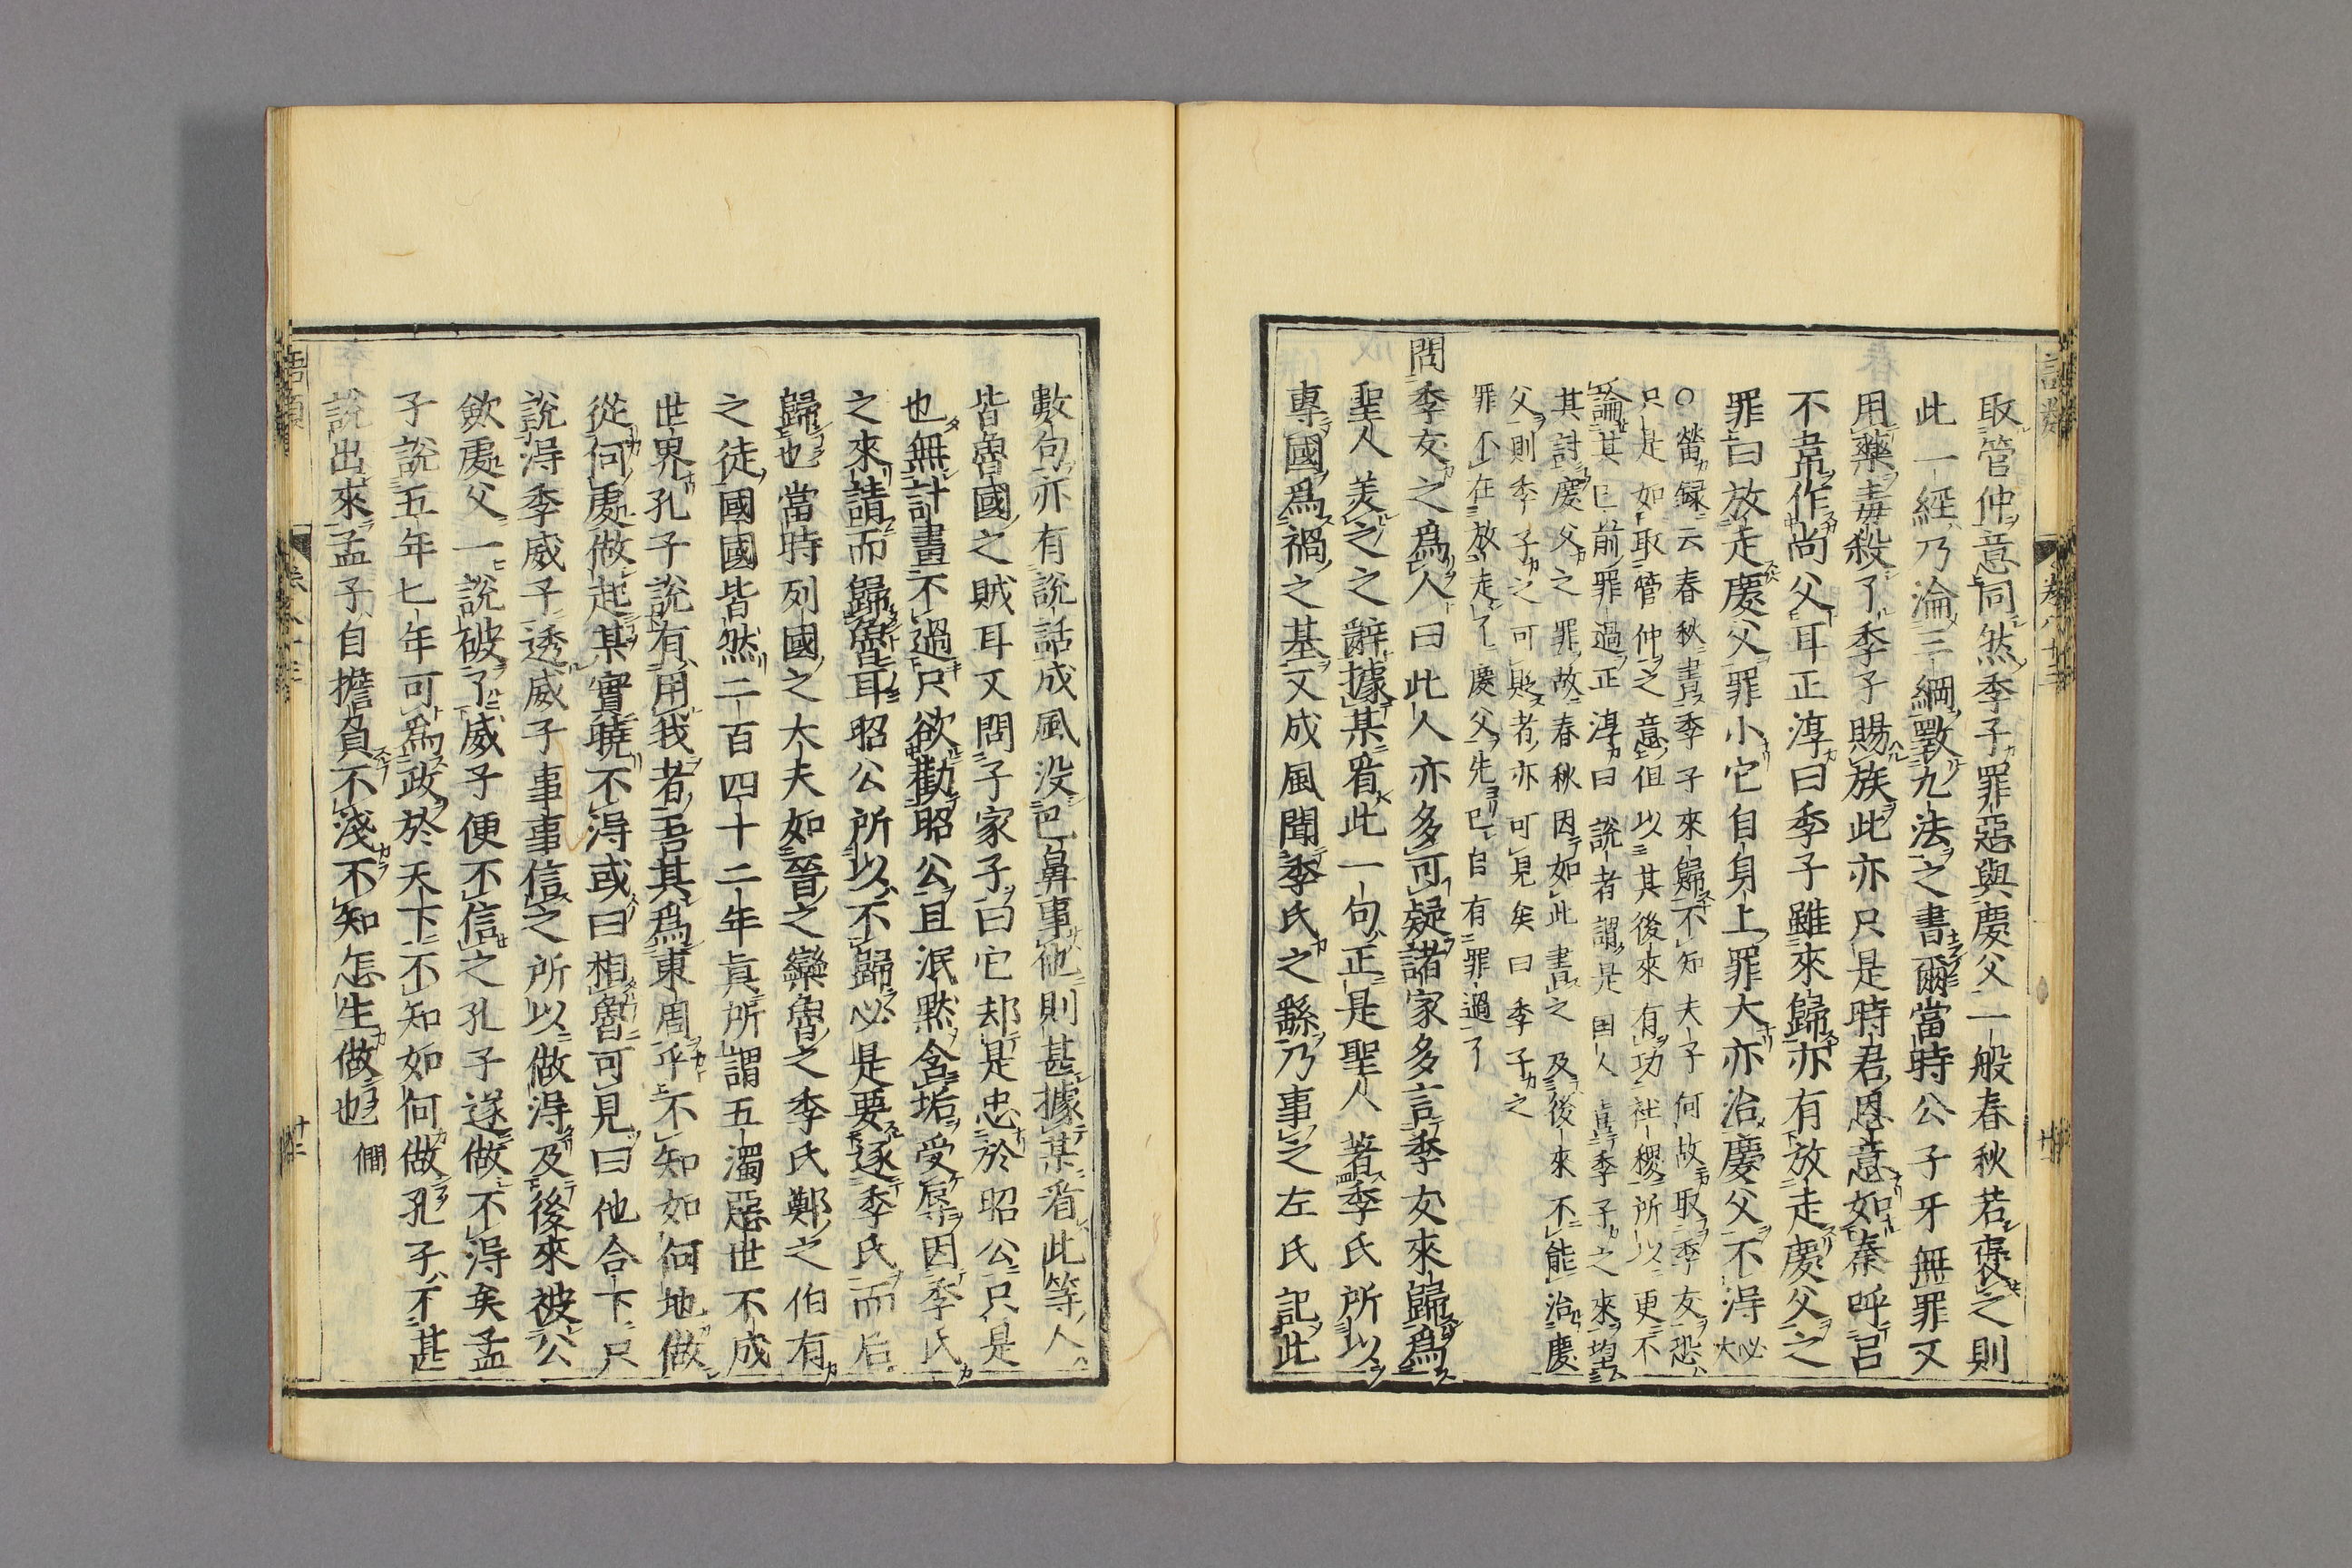 取管仲意同然季子罪惡與慶父一般春秋若褒之則
此一經乃淪三綱斁九法之書爾當時公子牙無罪又
用藥毒殺了季子賜族此亦只是時君恩意如秦呼呂
不韋作尚父耳正淳曰季子雖來歸亦有放走慶父之
罪曰放走慶父罪小它自身上罪大亦治慶父不得必大
○㽦録云春秋書季子來歸不知夫子何故取季友恐
只是如取管仲之意但以其後來有功社稷所以更不
論其已前罪過正淳曰說者謂是國人喜季子之來望
其討慶父之罪故春秋因如此書之及後來不能治慶
父則季子之可貶者亦可見矣曰季子之
罪不在放走了慶父先已自有罪過了
問季友之為人曰此人亦多可疑諸家多言季友來歸為
聖人美之之辭據某看此一句正是聖人著季氏所以
專國為禍之基又成風聞季氏之繇乃事之左氏記此
數句亦有說話成風没巴鼻事他則甚據某看此等人
皆魯國之賊耳又問子家子曰它却是忠於昭公只是
也無計畫不過只欲勸昭公且泯黙含垢受辱因季氏
之來請而歸魯耳昭公所以不歸必是要逐季氏而后
歸也當時列國之大夫如晉之欒魯之季氏鄭之伯有
之徒國國皆然二百四十二年真所謂五濁惡世不成
世界孔子說有用我者吾其為東周乎不知如何地做
從何處做起某實曉不得或曰相魯可見曰他合下只
說得季威子透威子事事信之所以做得及後來被公
斂處父一說破了威子便不信之孔子遂做不得矣孟
子說五年七年可為政於天下不知如何做孔子不甚
說出來孟子自擔負不淺不知怎生做也 僩
語類
卷八十三
廿一